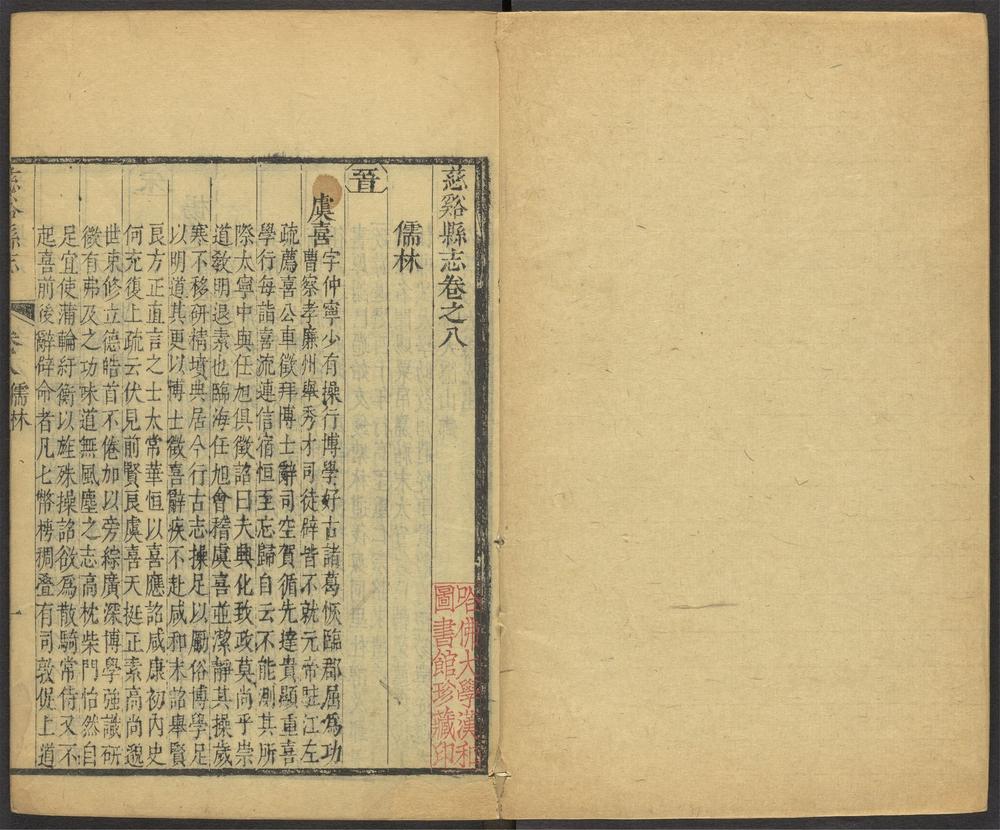 慈谿縣志卷之八
哈佛大學漢和
圖書館珍藏印
儒林
晉
虞喜字仲寧少有操行博學好古諸葛恢臨郡屈為功
曹察孝廉州舉秀才司徒辟皆不就元帝駐江左
疏薦喜公車徵拜博士辭司空賀循先達貴顯重喜
學行每詣喜流連信宿恒至忘歸自云不能測其所
際太寧中與任旭俱徵詔曰夫興化致政莫尚乎崇
道敎明退素也臨海任旭會稽虞喜並潔靜其操歲
寒不移硏精墳典居今行古志操足以厲俗博學足
以明道其更以博士徵喜辭疾不赴咸和末詔舉賢
良方正直言之士太常華恒以喜應詔咸康初內史
何充復上疏云伏見前賢良虞喜天挺正素高尚邈
世束修立德皓首不倦加以旁綜廣深博學強識硏
徵有弗及之功味道無風塵之志高枕柴門怡然自
足宜使蒲輪紆衡以旌殊操詔欲爲散騎常侍又不
起喜前後辭辟命者凡七幣榜稠疊有司敦促上道
慈谿縣志
卷八
儒林
一